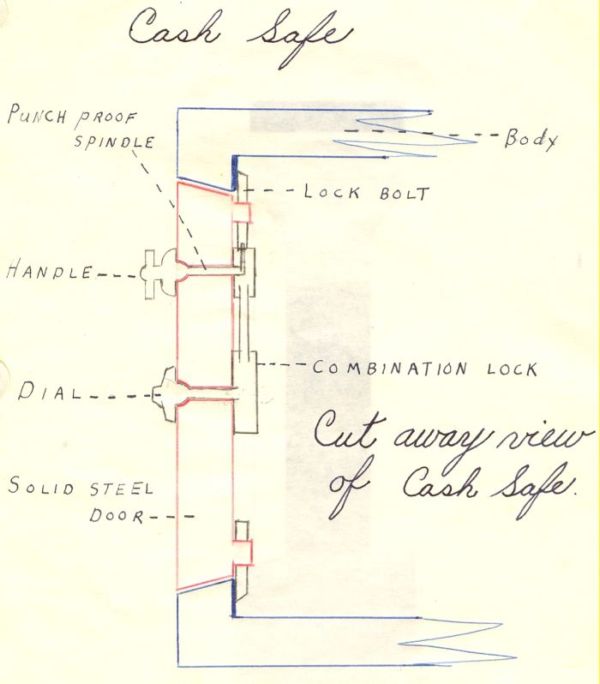 Cash Safe
PUNCH PROOF
SPINDLE
Body
LOCK BOLT
HANDLE
COMBINATION LOCK
DIAL
Cut away view
of Cash Safe.
SOLID STEEL
DOOR